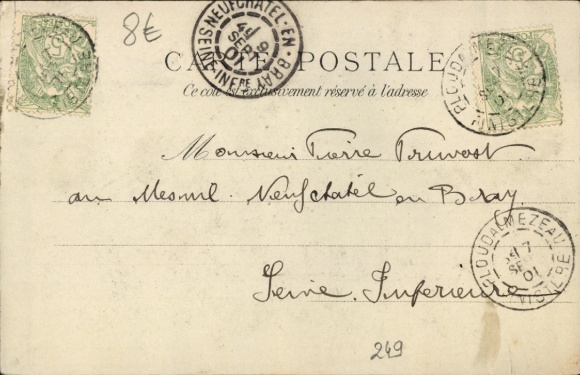 8€
NEUFCHÂTEL-EN-BRAY
SEINE INFRE
SEPT
01
CARTE POSTALE
Ce côté est exclusivement réservé à l'adresse
PLOUDALMEZEAU
FINISTERE
Monsieur Pierre Pruvost
au Mesnil. Neufchatel en Bray
PLOUDALMEZEAU
7
SEPT
01
FINISTERE
Seine Inferieure
249